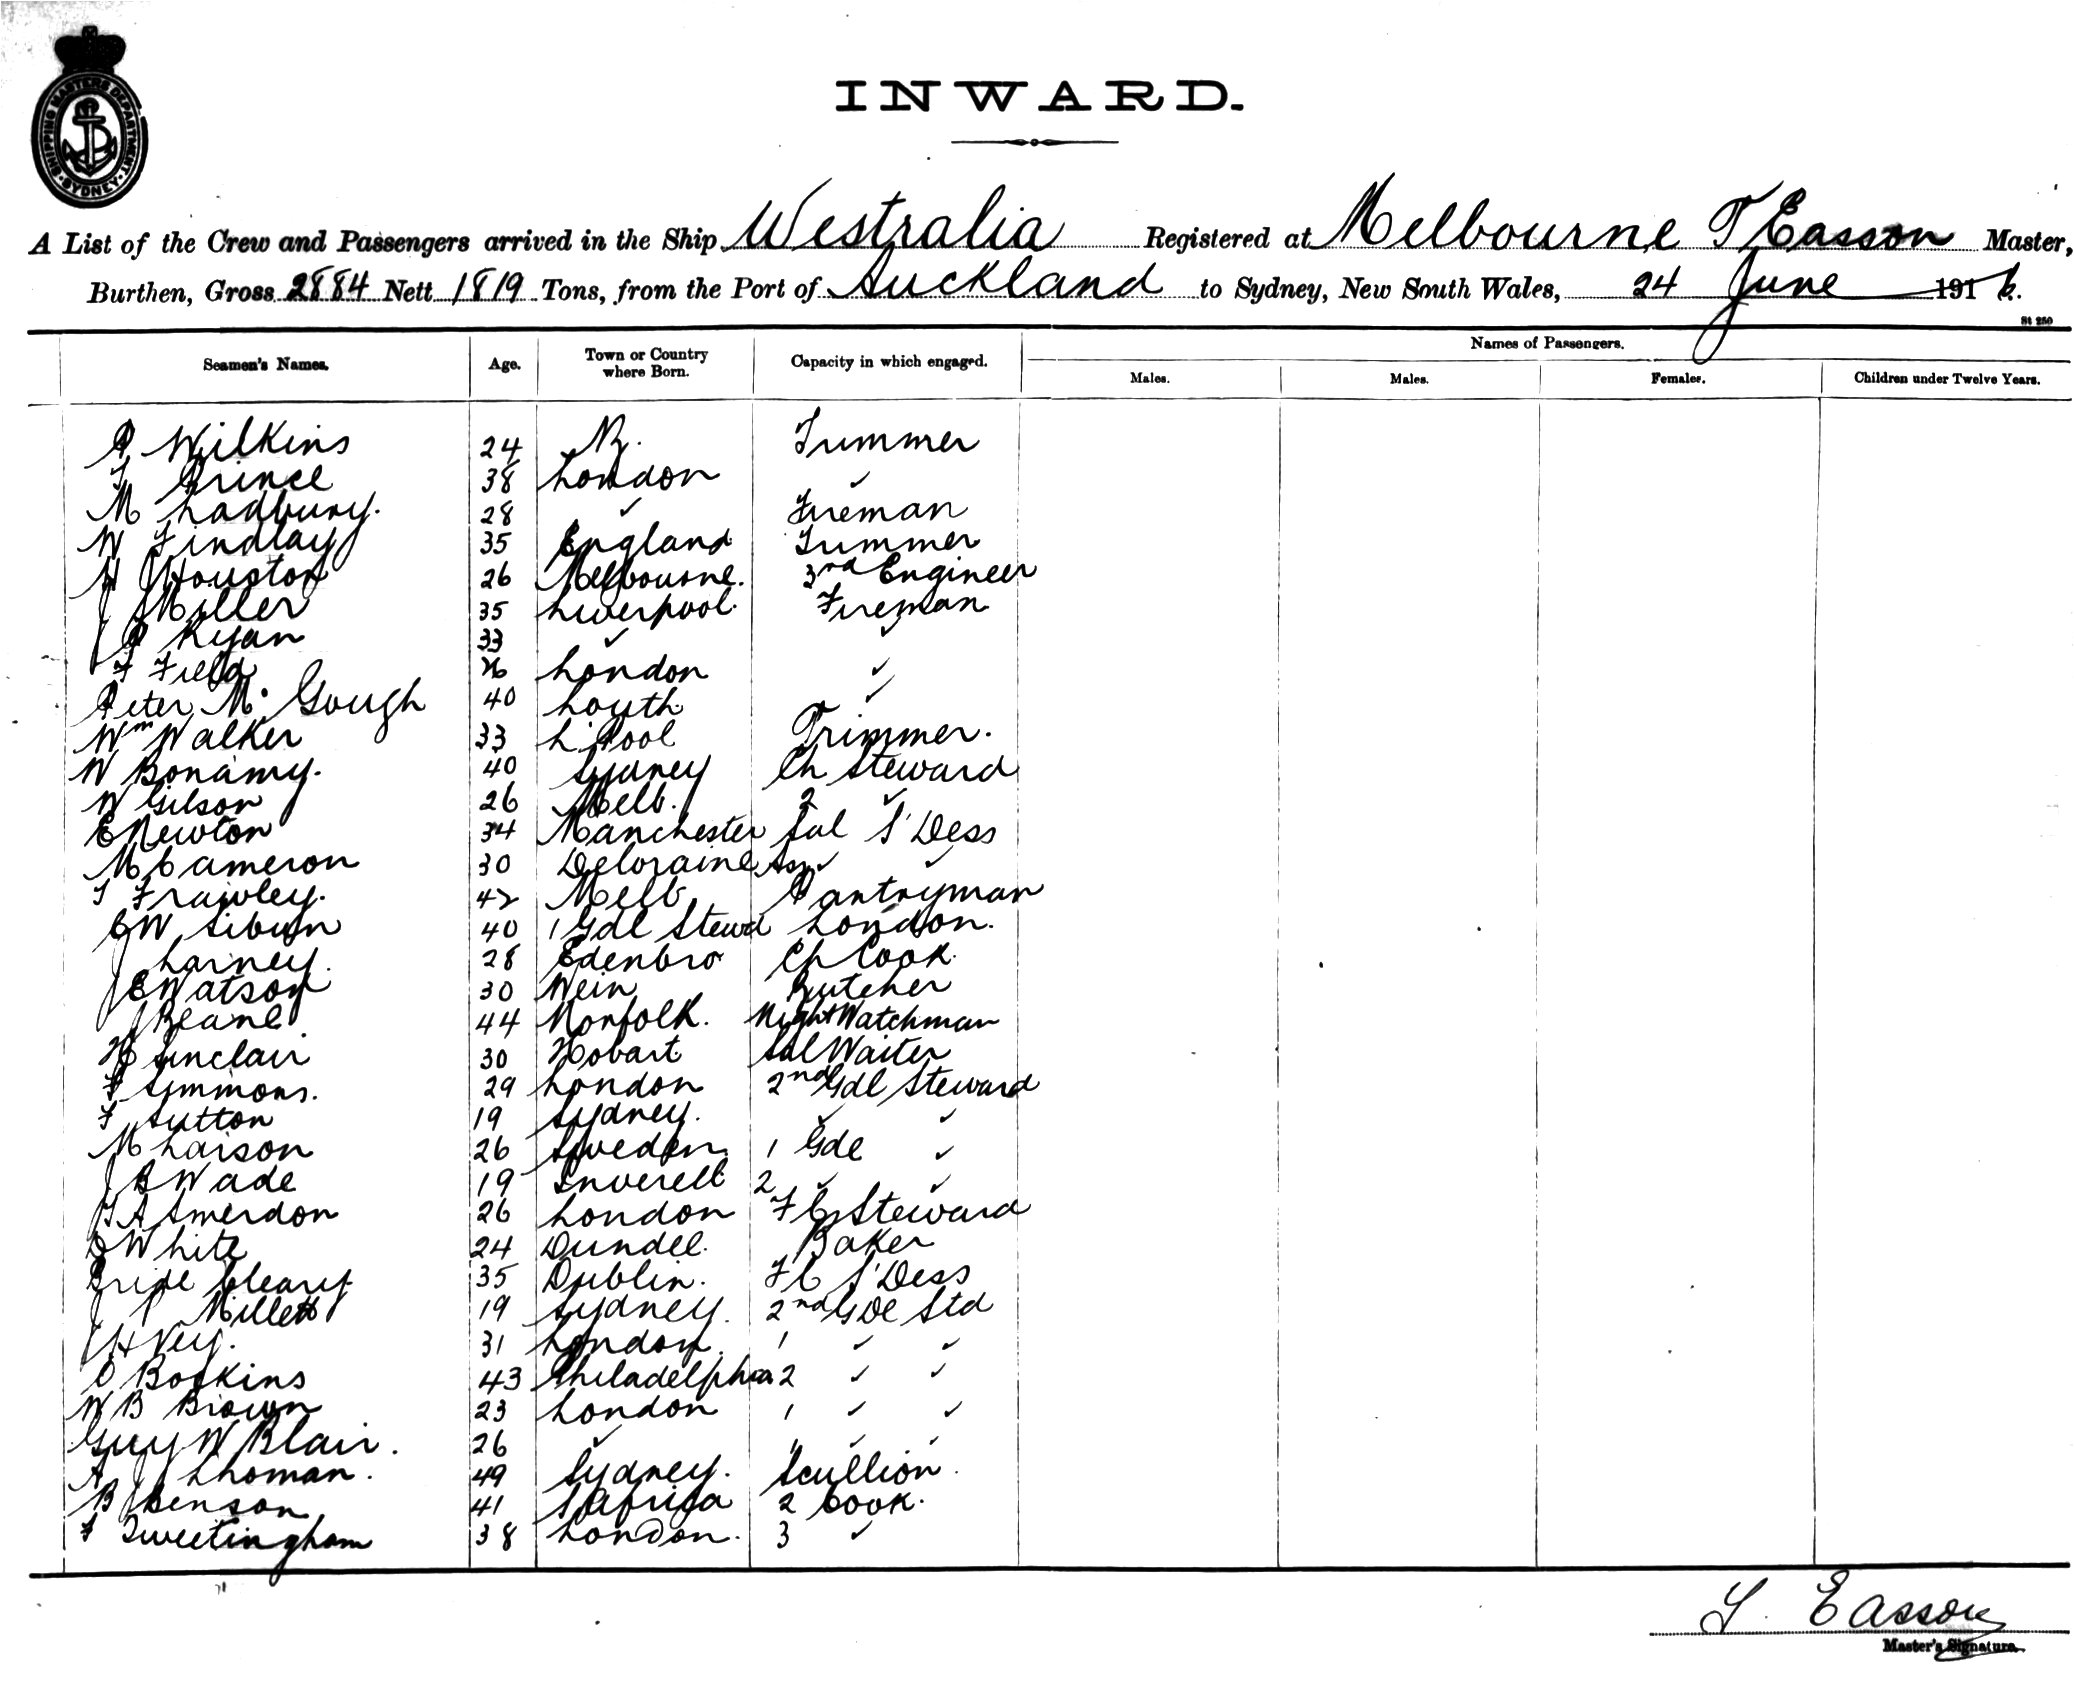 SHIPPING MASTERS DEPARTMENT. SYDNEY
INWARD.
A List of the Crew and Passengers arrived in the Ship Westralia Registered at Melbourne T Easson Master,
Burthen, Gross 2884 Nett 1819 Tons, from the Port of Auckland to Sydney, New South Wales, 24 June 1916.
St 250
Names of Passengers.
Seamen's Names. Age. Town or Country where Born. Capacity in which engaged. Males. Males. Females. Children under Twelve Years.
P Wilkins 24 Trimmer
T Prince 38 London ✓
M Ladbury. 28 ✓ Fireman
W Findlay 35 England Trimmer
H Houston 26 Melbourne. 3rd Engineer
J Miller 35 Liverpool. Fireman
J P Ryan 33 ✓ ✓
F Field 26 London ✓
Peter Mc Gough 40 Louth ✓
Wm Walker 33 L'Pool Trimmer.
W Bonamy. 40 Sydney Ch Steward
W Gilson 26 Melb. 2 ✓
E Newton 34 Manchester Sal S'Dess
M Cameron 30 Deloraine Ass ✓ ✓
T Frawley. 42 Melb Pantryman
C W Siburn 40 1 Gdl Stewd London.
J Larney. 28 Edenbro Ch Cook.
J E Watson 30 Wein Butcher
J Beane 44 Norfolk. Night Watchman
H Sinclair 30 Hobart Sal Waiter
F Simmons. 29 London 2nd Gdl Steward
F Sutton 19 Sydney. ✓ ✓
M Larson 26 Sweden 1 Gde ✓
J B Wade 19 Inverell 2 ✓ ✓
T A Smerdon 26 London F C Steward
White 24 Dundee. Baker
Bride Cleary 35 Dublin. F C S'Dess
J P Millett 19 Sydney. 2nd Gde Std
J H Vey. 31 London. 1 ✓ ✓
O Boskins 43 Philadelphia 2 ✓ ✓
W B Brown 23 London 1 ✓ ✓
Guy W Blair. 26 ✓ 1 ✓ ✓
A J Lhoman. 49 Sydney. Scullion.
B J Benson 41 S Africa 2 Cook.
F Sweetingham 38 London. 3 ✓
T. Easson
Master's Signature.